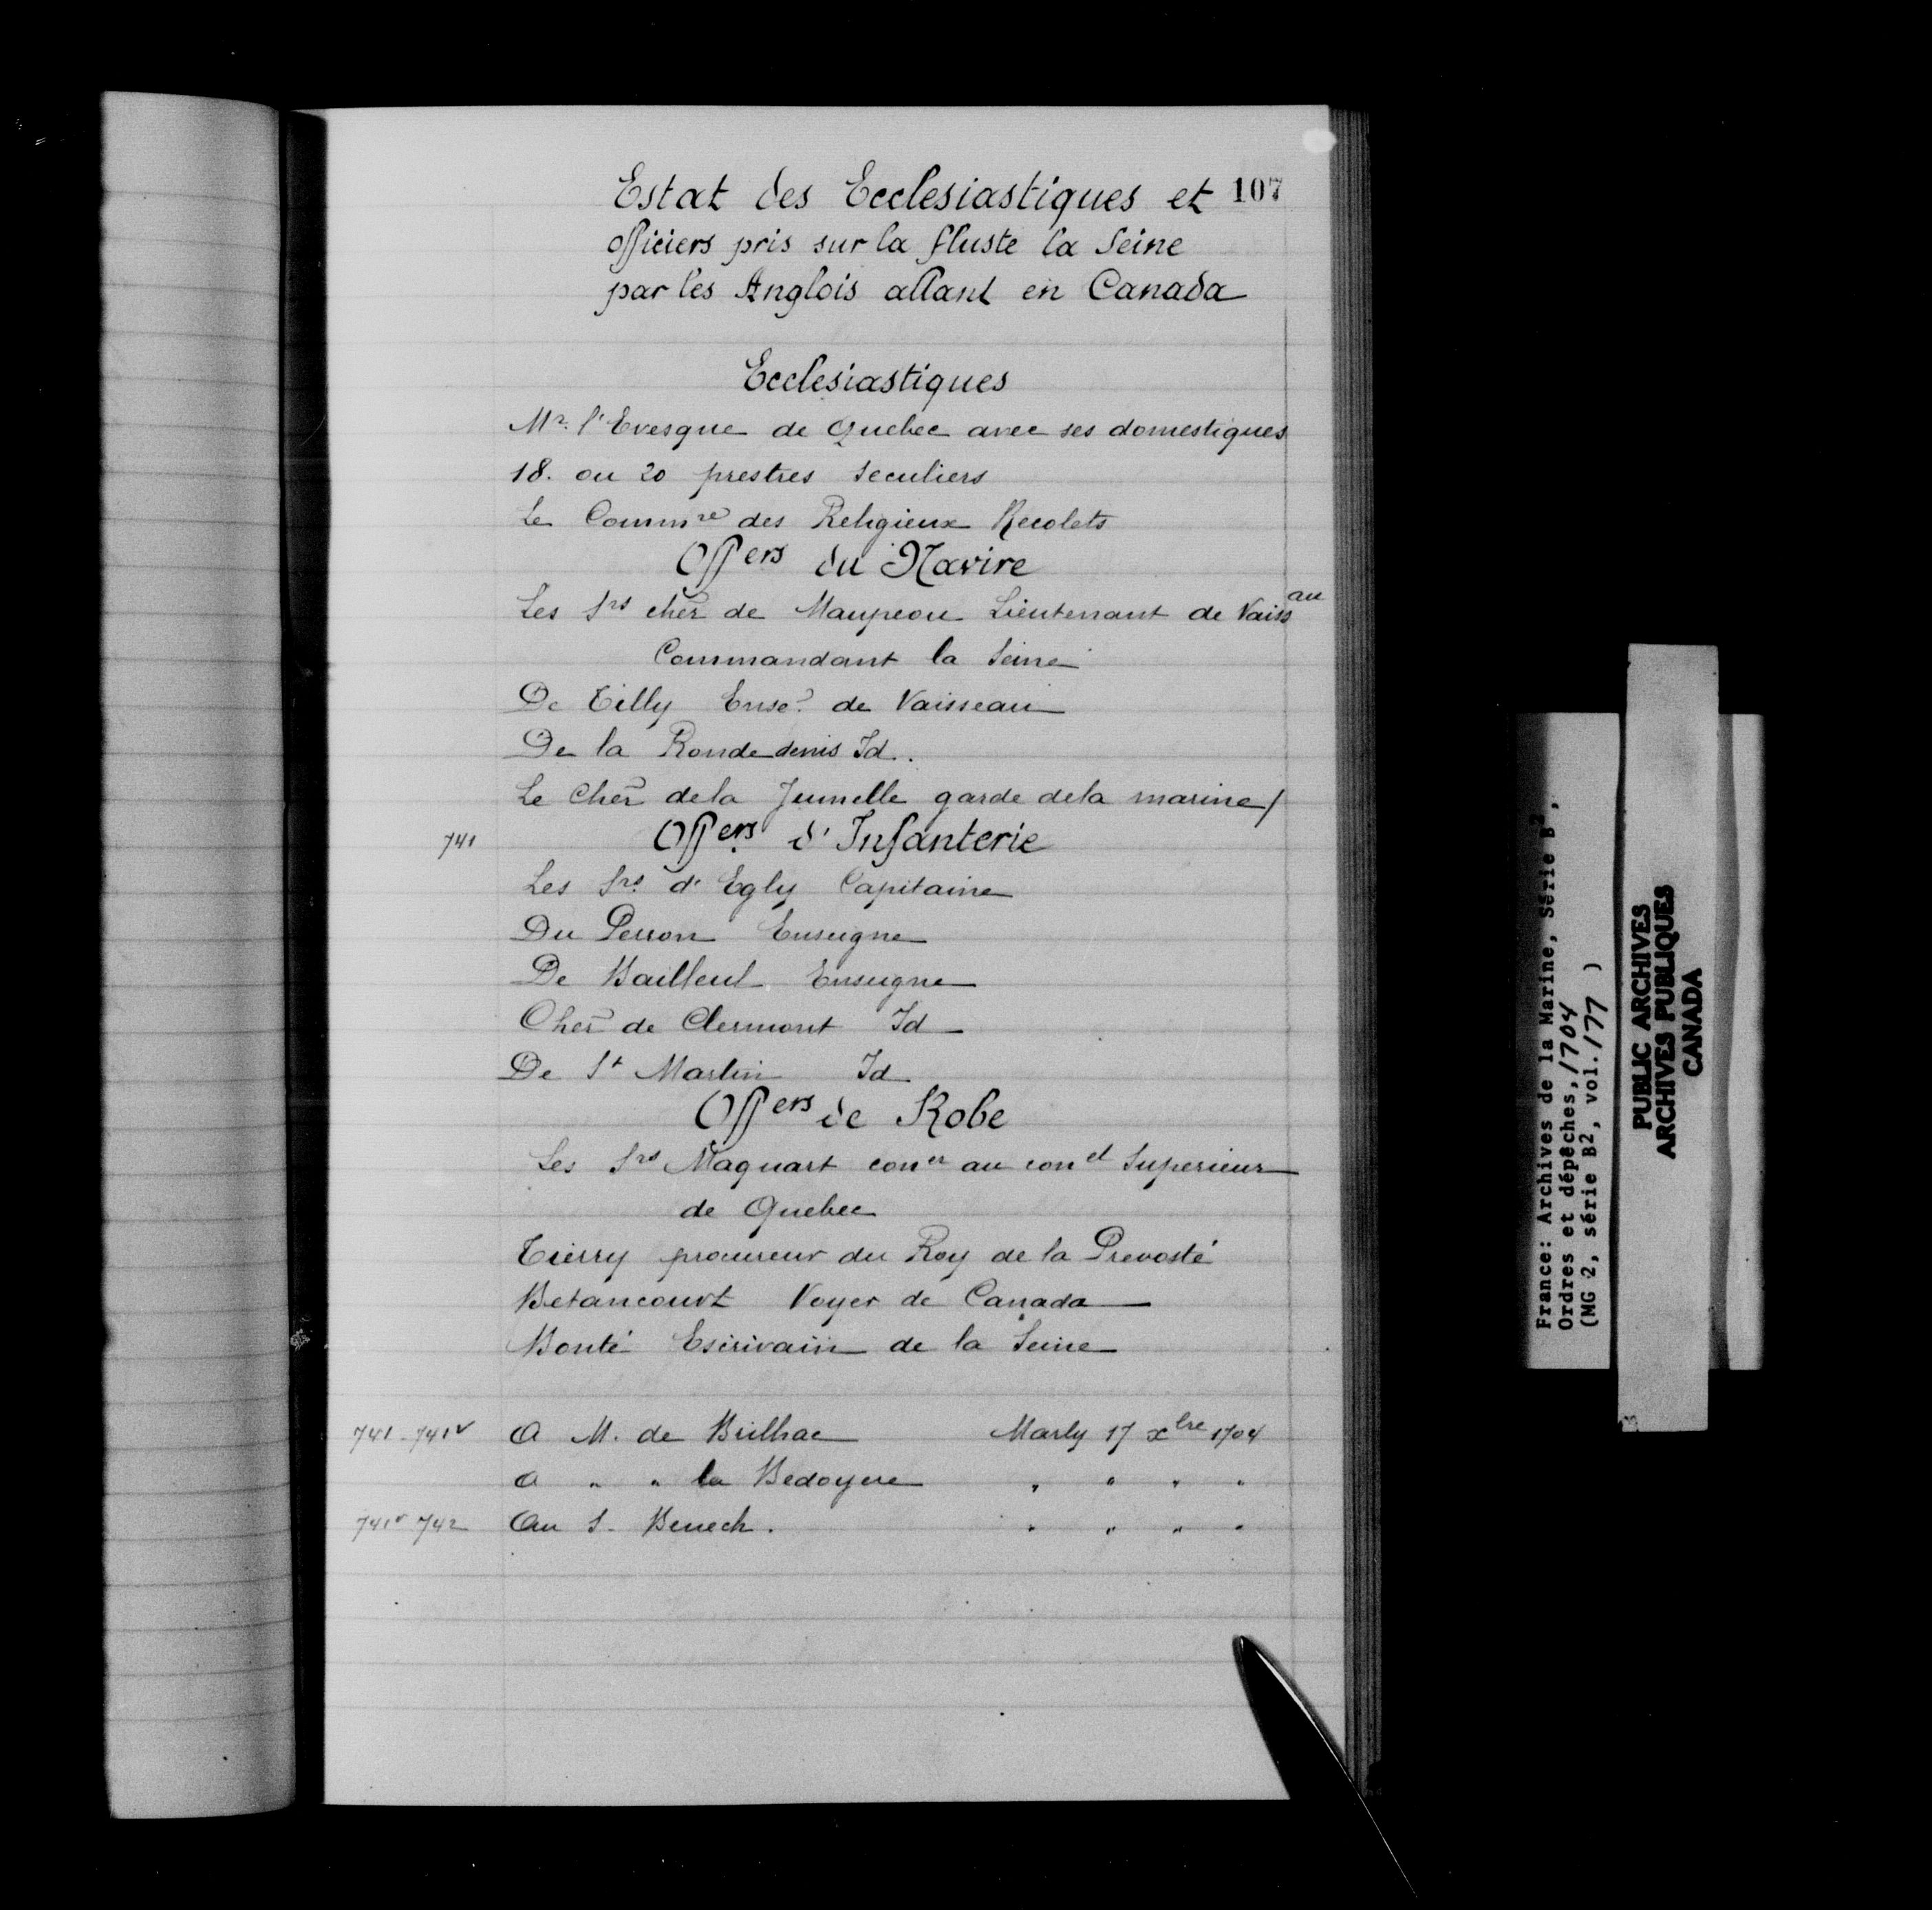 Estat des Ecclesiastiques et 107
officiers pris sur la fluste la Seine
par les Anglois allant en Canada
Ecclesiastiques
Mr. l'Evesque de Quebec avec ses domestiques
18. ou 20 prestres seculiers
Le Commre des Religieux Recolets
Offers du Navire
Les Srs cher de Maupeou Lieutenant de Vaissau
Commandant la Seine
De Tilly Anse. de Vaisseau
De la Ronde denis Id.
Le Cher dela Jumelle garde dela marine/
741 Offers d'Infanterie
Les Srs d'Egly Capitaine
Du Perron Enseigne
De Bailleul Enseigne
Cher de Clermont Id
De St Martin Id
Offers de Robe
Les Srs Maquart coner au conel Superieur
de Quebec
Tierry procureur du Roy de la Prevosté
Betancourt Voyer de Canada
Bonté Escrivain de la Seine
741-741v A M. de Brilhac Marly 17 xbre 1704
A " " la Bedoyere " " " "
741v 742 Au S. Benech. " " " "
France: Archives de la Marine, Série B2,
Ordres et dépêches, 1704
(MG 2, série B2, vol. 177 )
PUBLIC ARCHIVES
ARCHIVES PUBLIQUES
CANADA